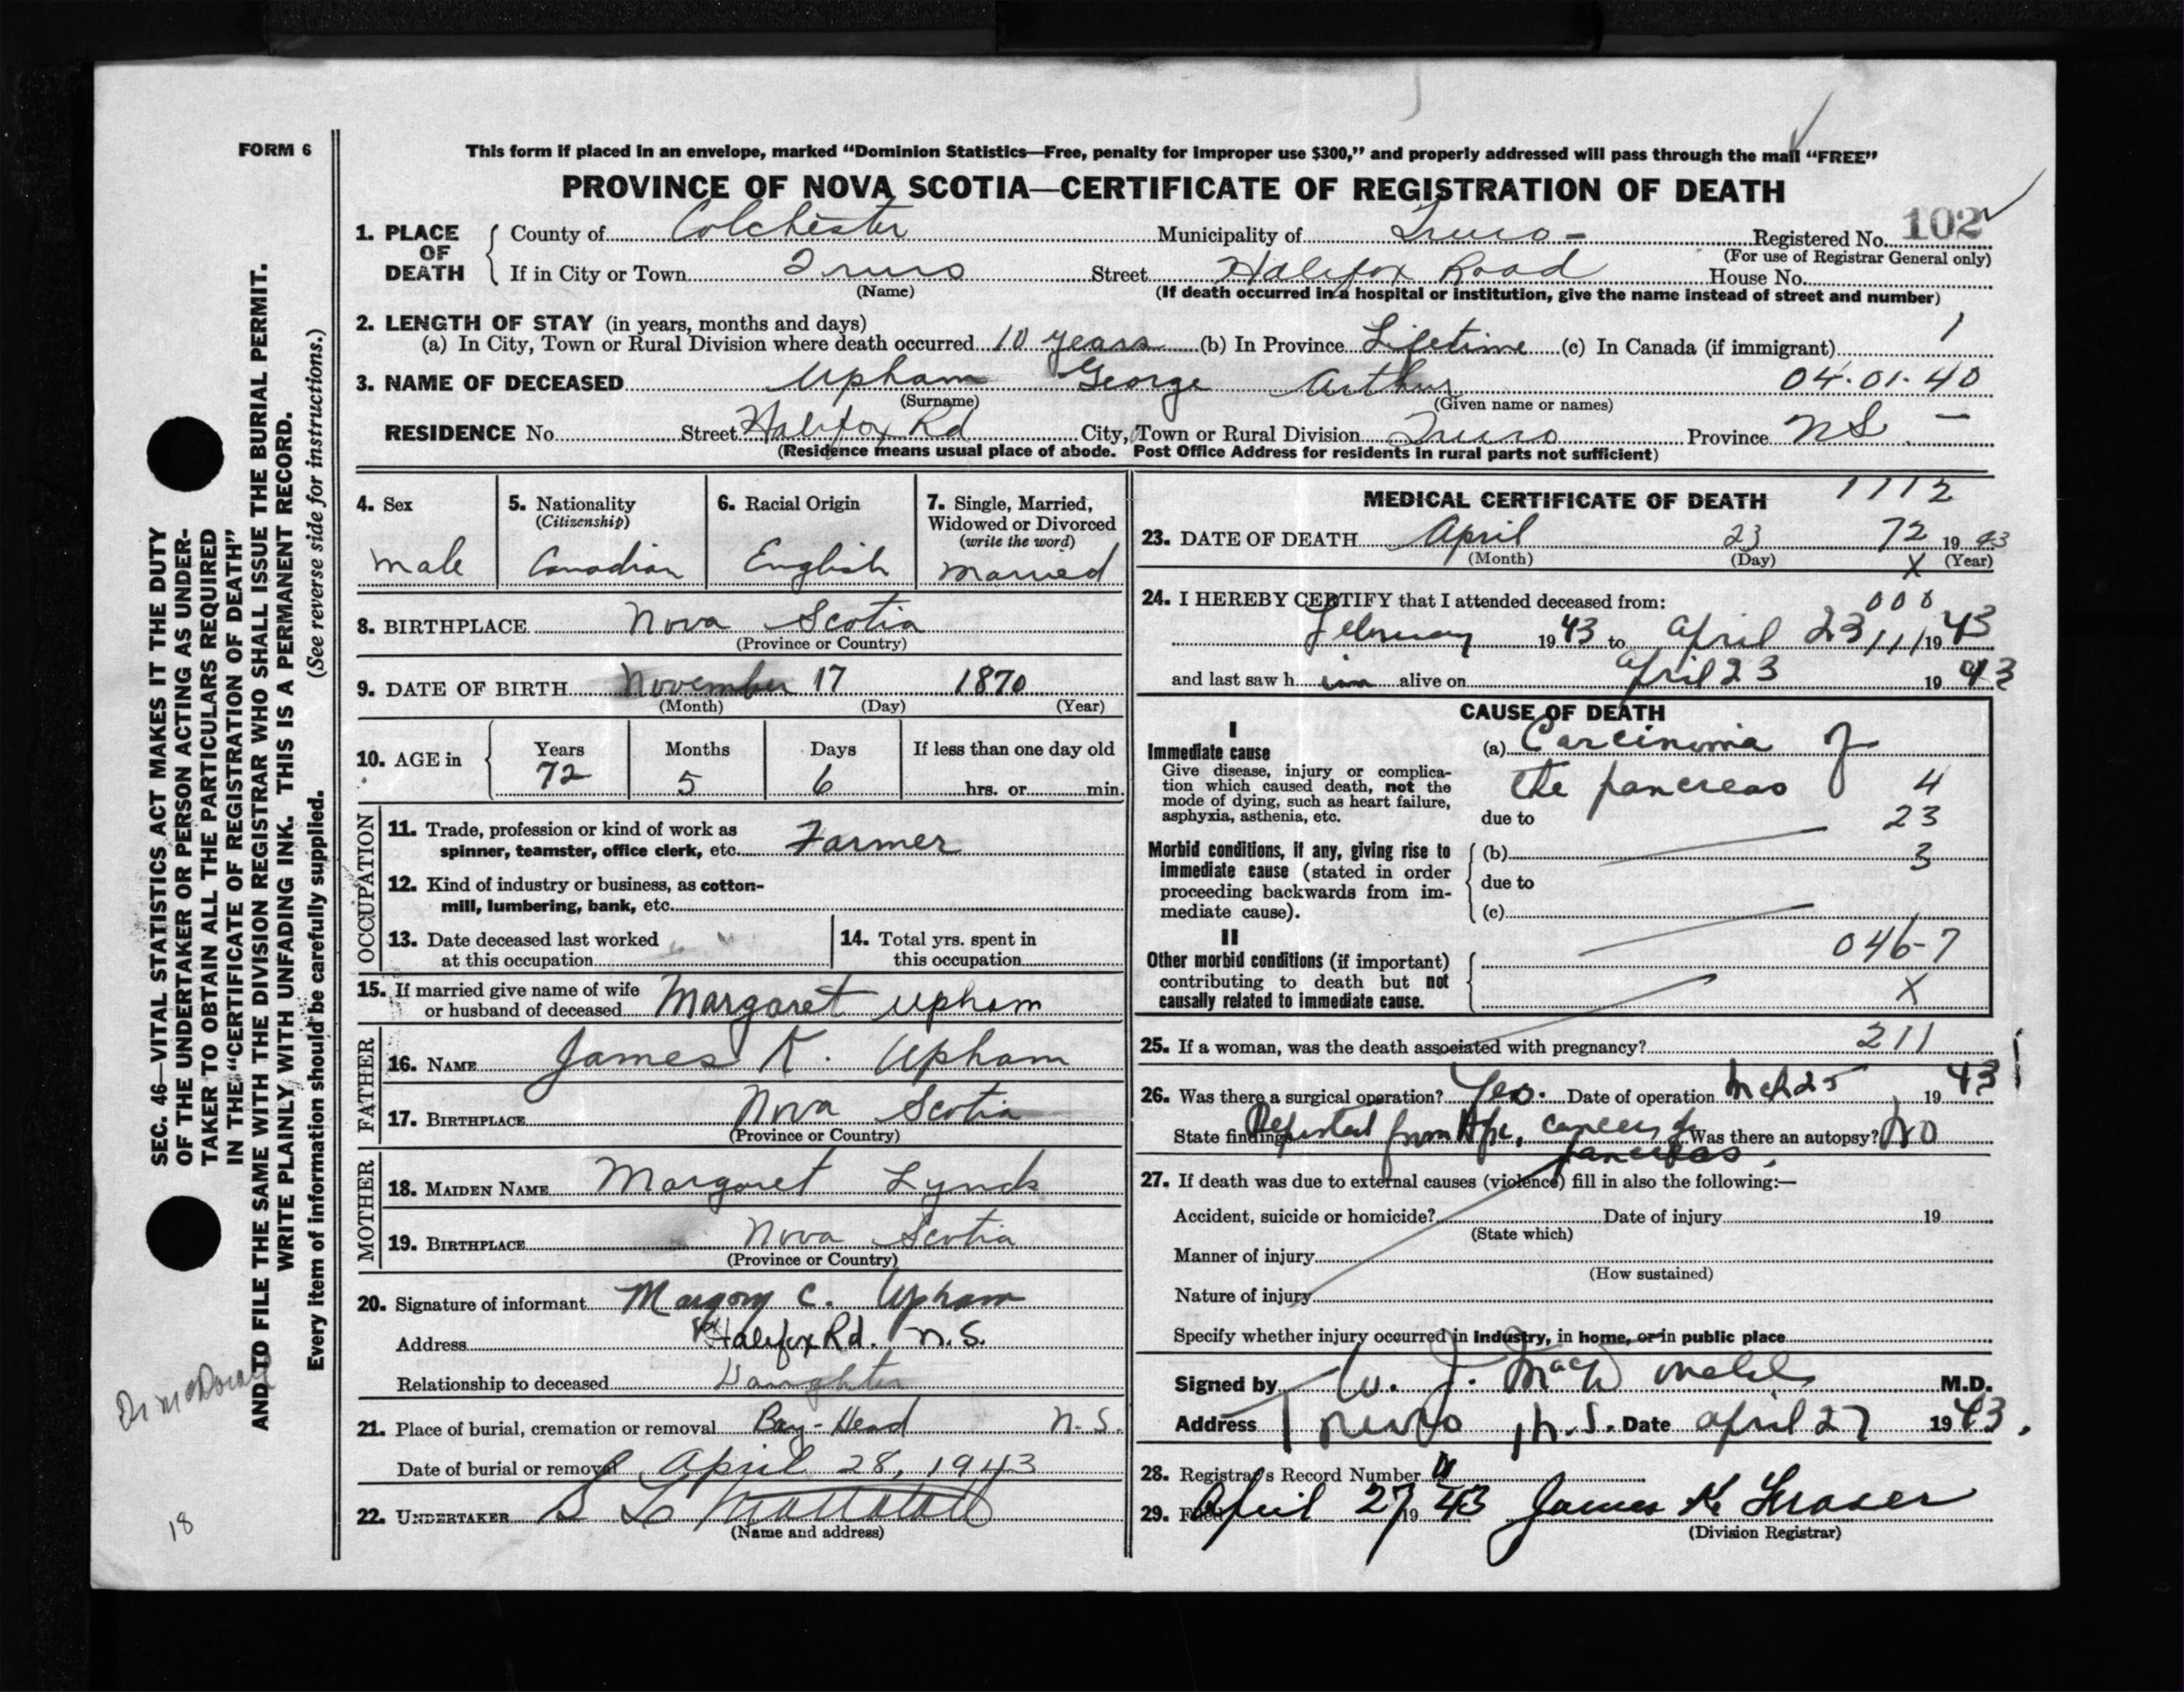 FORM 6
This form if placed in an envelope, marked “Dominion Statistics—Free, penalty for improper use $300,” and properly addressed will pass through the mail “FREE”
PROVINCE OF NOVA SCOTIA—CERTIFICATE OF REGISTRATION OF DEATH
1. PLACE OF DEATH
County of Colchester Municipality of Truro - Registered No. 102
(For use of Registrar General only)
If in City or Town Truro Street Halifax Road House No.
(Name) (If death occurred in a hospital or institution, give the name instead of street and number)
2. LENGTH OF STAY (in years, months and days)
(a) In City, Town or Rural Division where death occurred 10 years (b) In Province Lifetime (c) In Canada (if immigrant) 1
3. NAME OF DECEASED Upham George Arthur 04.01.40
(Surname) (Given name or names)
RESIDENCE No. Street Halifax Rd City, Town or Rural Division Truro Province N S. —
(Residence means usual place of abode. Post Office Address for residents in rural parts not sufficient)
4. Sex
male
5. Nationality
(Citizenship)
Canadian
6. Racial Origin
English
7. Single, Married,
Widowed or Divorced
(write the word)
Married
8. BIRTHPLACE Nova Scotia
(Province or Country)
9. DATE OF BIRTH November 17 1870
(Month) (Day) (Year)
10. AGE in Years Months Days If less than one day old
72 5 6 hrs. or min.
OCCUPATION
11. Trade, profession or kind of work as
spinner, teamster, office clerk, etc. Farmer
12. Kind of industry or business, as cotton-
mill, lumbering, bank, etc.
13. Date deceased last worked
at this occupation
14. Total yrs. spent in
this occupation
15. If married give name of wife
or husband of deceased Margaret Upham
FATHER
16. NAME James K. Upham
17. BIRTHPLACE Nova Scotia
(Province or Country)
MOTHER
18. MAIDEN NAME Margaret Lynds
19. BIRTHPLACE Nova Scotia
(Province or Country)
20. Signature of informant C. Upham
Address Halifax Rd. N.S.
Relationship to deceased Daughter
21. Place of burial, cremation or removal Bay-Head N.S.
Date of burial or removal April 28, 1943
22. UNDERTAKER S L
(Name and address)
MEDICAL CERTIFICATE OF DEATH 1112
23. DATE OF DEATH April 23 72 1943
(Month) (Day) X (Year)
24. I HEREBY CERTIFY that I attended deceased from: 000
February 1943 to April 23 111 1943
and last saw him alive on April 23 1943
CAUSE OF DEATH
I
Immediate cause
Give disease, injury or complica-
tion which caused death, not the
mode of dying, such as heart failure,
asphyxia, asthenia, etc.
(a) Carcinoma of
the pancreas 4
due to 23
Morbid conditions, if any, giving rise to
immediate cause (stated in order
proceeding backwards from im-
mediate cause).
(b) 3
due to
(c)
II
Other morbid conditions (if important)
contributing to death but not
causally related to immediate cause.
046-7
X
25. If a woman, was the death associated with pregnancy? 211
26. Was there a surgical operation? Yes. Date of operation Mch 25 1943
State findings Reported from cancer of pancreas. Was there an autopsy? No
27. If death was due to external causes (violence) fill in also the following:—
Accident, suicide or homicide? Date of injury 19
(State which)
Manner of injury
(How sustained)
Nature of injury
Specify whether injury occurred in industry, in home, or in public place
Signed by W. J. MacDonald M.D.
Address Truro N.S. Date April 27 1943.
28. Registrar's Record Number
29. Filed April 27 1943 James K Fraser
(Division Registrar)
SEC. 46—VITAL STATISTICS ACT MAKES IT THE DUTY
OF THE UNDERTAKER OR PERSON ACTING AS UNDER-
TAKER TO OBTAIN ALL THE PARTICULARS REQUIRED
IN THE “CERTIFICATE OF REGISTRATION OF DEATH”
AND TO FILE THE SAME WITH THE DIVISION REGISTRAR WHO SHALL ISSUE THE BURIAL PERMIT.
WRITE PLAINLY WITH UNFADING INK. THIS IS A PERMANENT RECORD.
Every item of information should be carefully supplied. (See reverse side for instructions.)
Dr McDonald
18